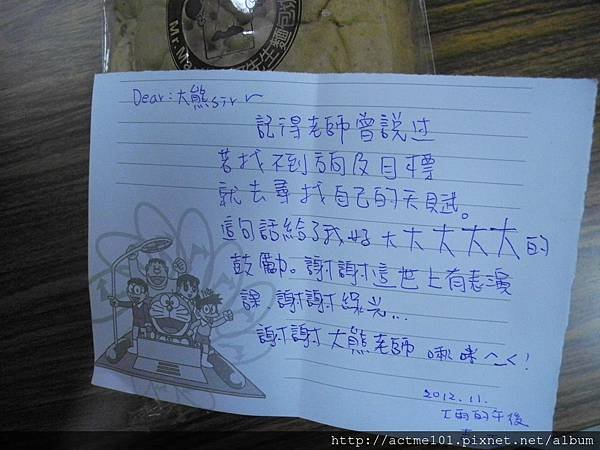 Dear:大熊sir~
記得老師曾說过
若找不到方向及目標
就去尋找自己的天賦。
這句話給了我好大大大大大的
鼓勵。謝謝這世上有表演
課.謝謝綠光...
謝謝大熊老師 啾咪^_<!
2012.11.
下雨的午後
http://actme101.pixnet.net/album